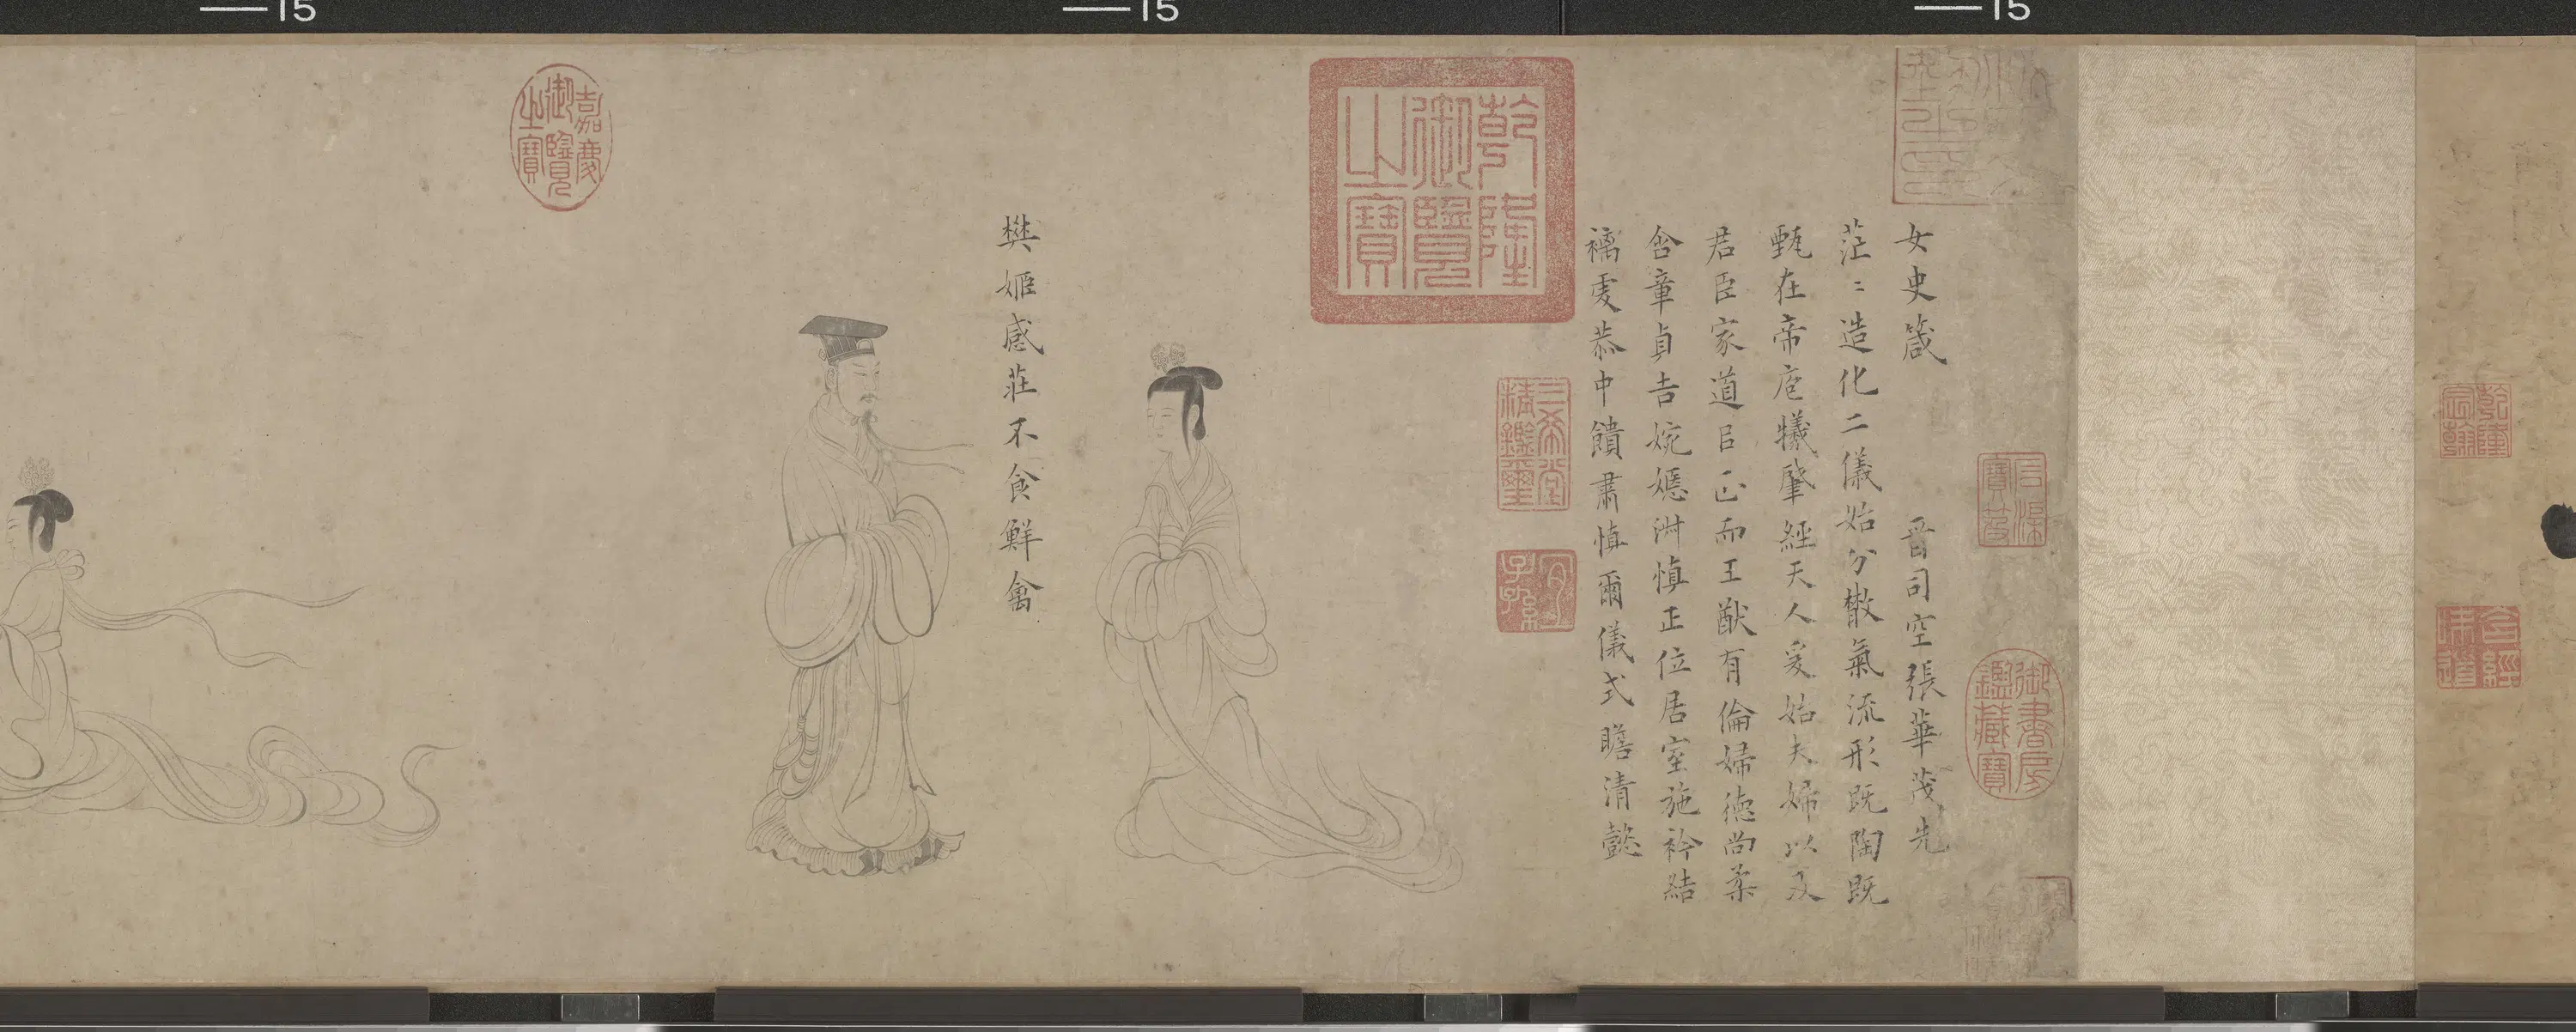 15
15
15
乾隆宸翰
含經味道
石渠寶笈
御書房鑑藏寶
女史箴 晉司空張華茂先
茫〻造化二儀始分散氣流形既陶既
甄在帝庖犧肇經天人爰始夫婦以及
君臣家道㠯正而王猷有倫婦德尚柔
含章貞吉婉嫕淑慎正位居室施衿結
褵虔恭中饋肅慎爾儀式瞻清懿
乾隆御覽之寶
三希堂精鑑璽
宜子孫
樊姬感莊不食鮮禽
嘉慶御覽之寶